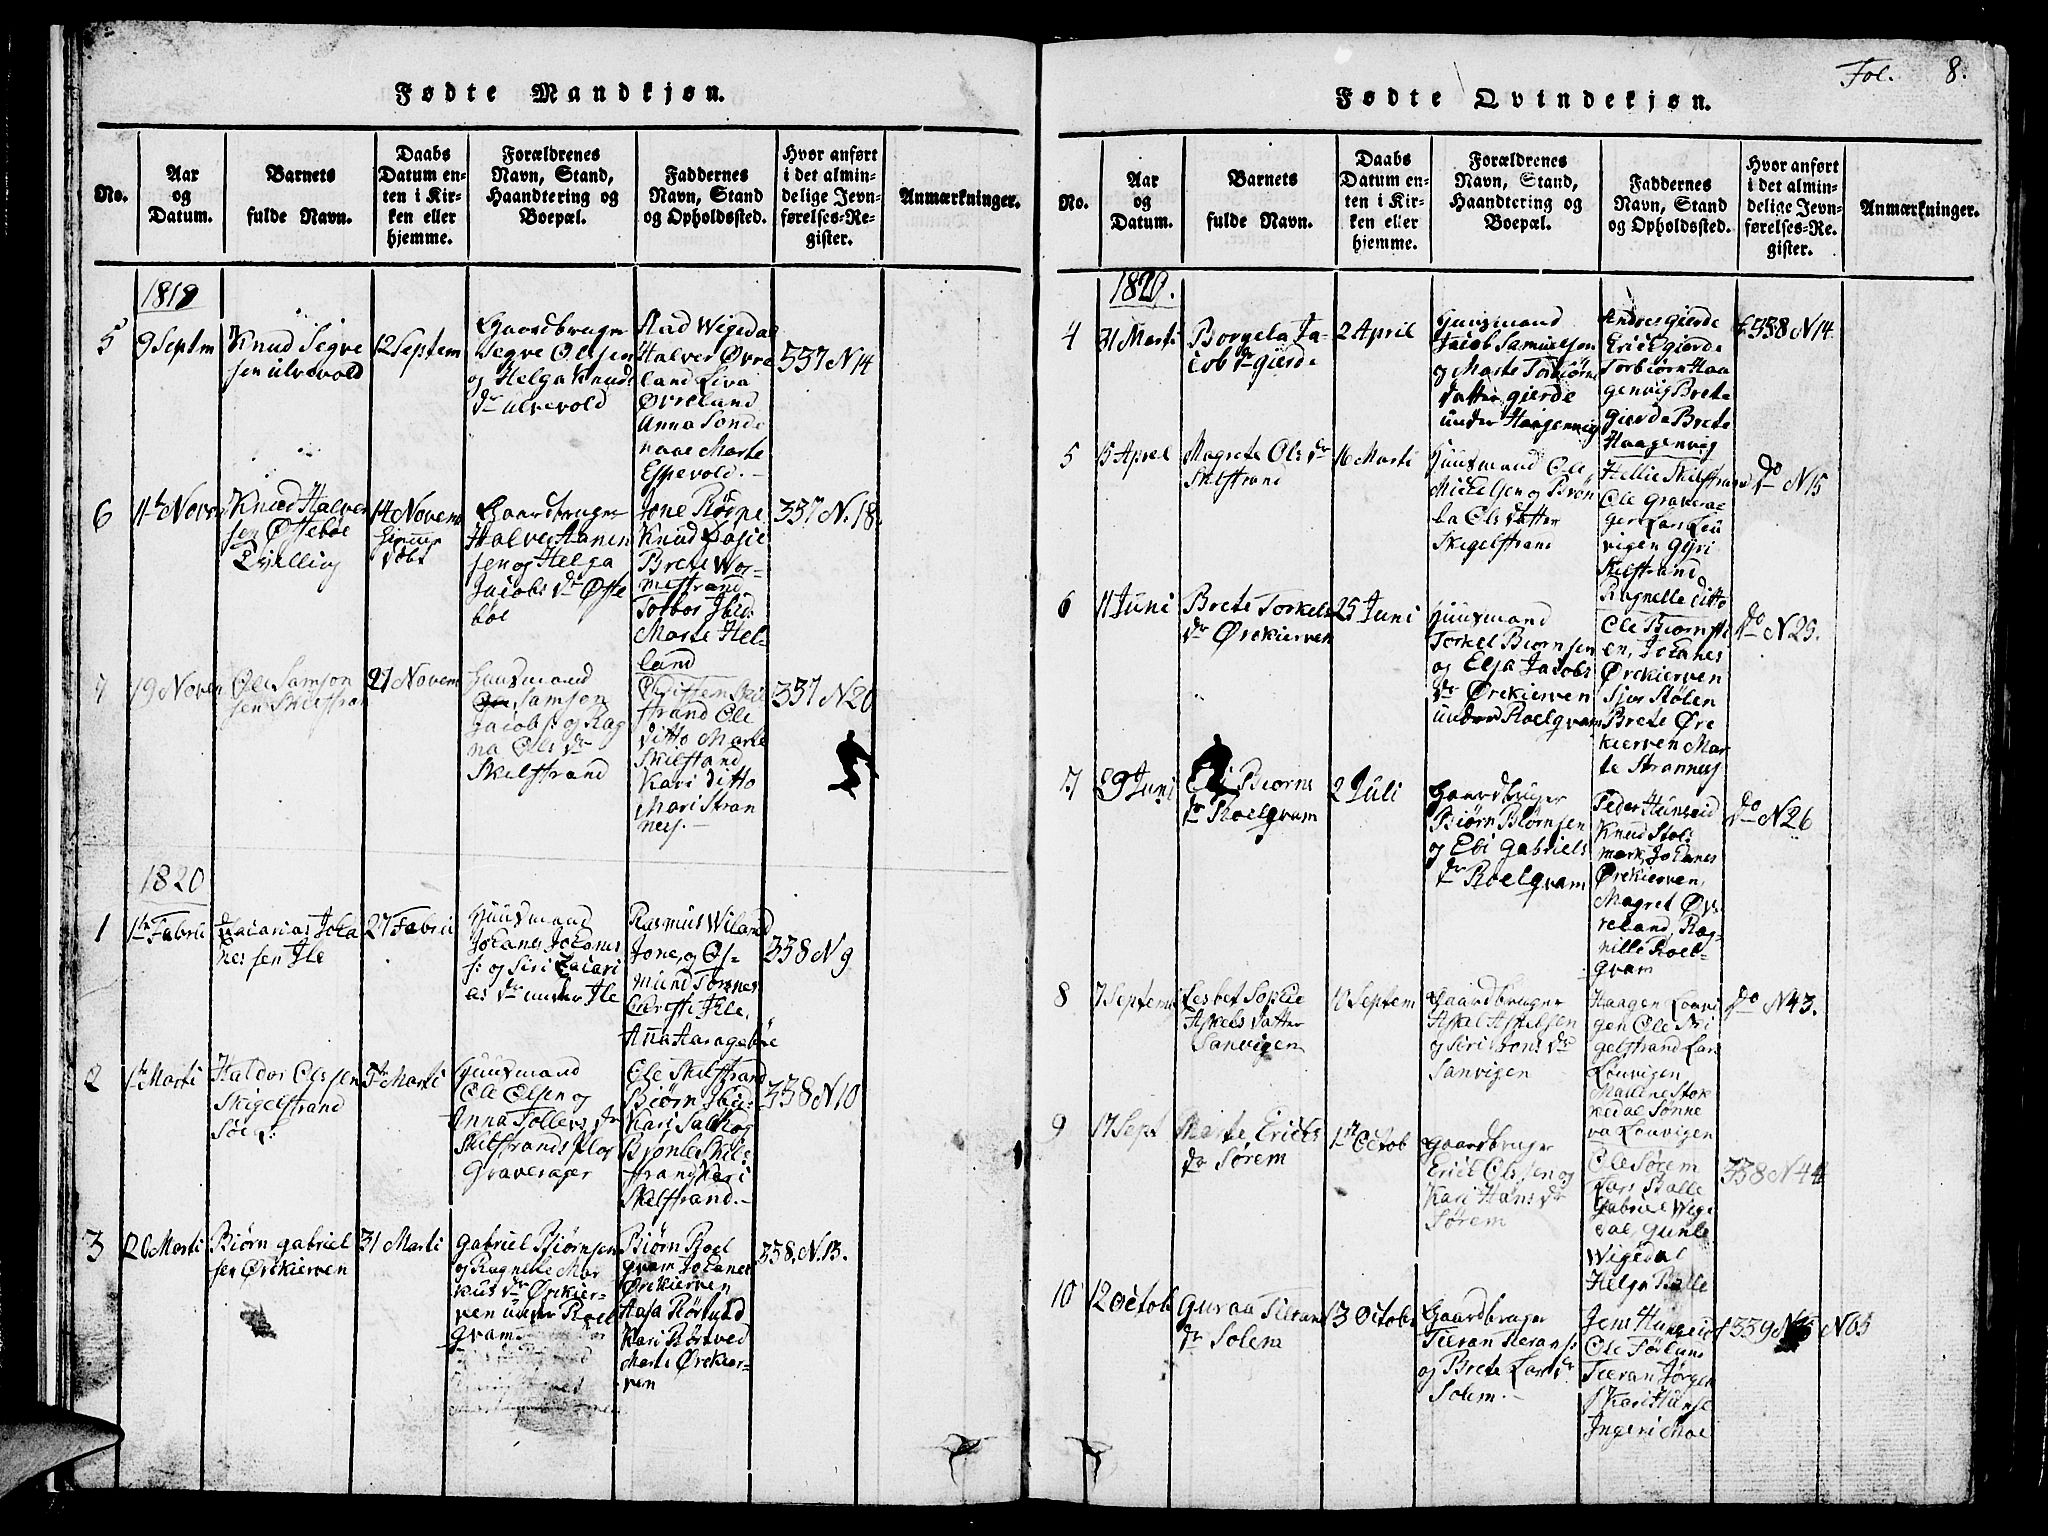 Fol. 8.
Fødte Mandkjøn.
No.
Aar
og
Datum.
Barnets
fulde Navn.
Daabs
Datum en-
ten i Kir-
ken eller
hjemme.
Forældrenes
Navn, Stand,
Haandtering og
Boepæl.
Faddernes
Navn, Stand
og Opholdssted.
Hvor anført
i det almin-
delige Jevn-
førelses-Re-
gister.
Anmærkninger.
1819
5
9 Septm
Knud Segve
sen ulvevold
12 Septem
Gaardbruger
Segve Olsen
og Helga Knuds
dr ulvevold
Wigedal
Halver Øvre
land Liva
Øvreland
Anna Sonde
naae Marte
Espevold.
337 N 14
6
11te Noven
Knud Halver
sen Østebøe
Tvilling
14 Novem
Gaardbruger
Halver Aanen
sen og Helga
Jacobs dr Øste
bøe
Jone Røgne
Knud
Brete Wor-
mestrand
Torbor Ibid:
Marte Hel-
land
337 N. 18
7
19 Noven
Ole Samson
sen Skilstran
21 Novem
Huusmand
Samson
Jacobs: og Rag
na Ols dr
Skilstrand
strand Ole
ditto Marte
Skilstand
Kari ditto
Mari Stran
nes.
337 N 20
1820
1
1te Febru
Zacarias Joha
nes sen Ile
27 Febru
Huusmand
Johanes Johanes
s: og Siri Zacari
as dr under Ile
Rasmus Wiland
Jone, og Os-
mund Tornes
Christi Ile,
Anna Aaragebøe
338 N 9
2
1te Marti
Haldor Olssen
Skigelstrand
5te Marti
Huusmand
Ole Olsen og
Anna Tollevs dr
Skilstrands
Graverager
Ole Skilstrand
Biørn Ibid:
Kari
Skil
strand Kari
Skilstrand.
338 N 10
3
20 Marti
Biørn gabriel
sen Ørekierven
31 Marti
Gabriel Biørnsen
og Ragnelle Mar
kus dr Ørekier-
ven under Roel
qvam
Biørn Roel
qvam Johanes
Ørekierven
Aasa Rørlund
Kari Rørtved
Marte Ørekier-
ven
338. N. 13.
Fødte Qvindekjøn.
No.
Aar
og
Datum.
Barnets
fulde Navn.
Daabs
Datum en-
ten i Kir-
ken eller
hjemme.
Forældrenes
Navn, Stand,
Haandtering og
Boepæl.
Faddernes
Navn, Stand
og Opholdssted.
Hvor anført
i det almin-
delige Jevn-
førelses-Re-
gister.
Anmærkninger.
1820.
4
31 Marti
Borgela Ja-
cob dr gierde
2 April
Huusmand
Jacob Samuelsen
og Marte Torbiørns
datter gierde
under Haagenvig
Andres gierde
Erick gierde
Torbiørn Haa
genvig Brete
gierde Brete
Haagenvig
f 338 N 14
5
15 Aprel
Magrete Ols dr
Skilstrand
16 Marti
Huusmand Ole
Mickelsen og Brøn
la Ols datter
Skigelstrand
Hellie Skilstrand
Ole Gravera-
ger Lars Lou
vigen Gyri
Skilstrand
Ragnelle ditto
do N 15
6
11 Juni
Brete Torkels
dr Ørekierven
25 Juni
Huusmand
Torkel Biørnsen
og Elsa Jacobs
dr Ørekierven
under Roelqvam
Ole
en, Johanes
Ørekierven
Siør Stølen
Brete Øre
kierven Mar
te Strannes
do N 25.
7
29 Juni
Biørns
dr Roelqvam
2 Juli
Gaardbruger
Biørn Biørnsen
og Eli Gabriels
dr Roelqvam
Peder Hunseid
Knud Støl:
mark, Johanes
Ørekierven,
Magret Øv
reland, Rag-
nille Roel-
qvam
do N 26
8
7 Septem
Lesbet Sophie
Askels datter
Sanvigen
10 Septem
Gaardbruger
Askel Askelsen
og Siri dr
Sanvigen
Haagen Louvi
gen Ole Ski
gelstrand Lars
Louvigen
Malene Stok
kedal Sønne
va Louvigen
do N 43.
9
17 Sept
Marte Ericks
dr Sørem
1ste Octob
Gaardbruger
Erick Olssen og
Kari Hans dr
Sørem
Ole Sørem
Lars Balle
Gabriel Wige
dal Gunle
Wigedal
Helga Balle
338 N 44
10
12 Octob
Guraa Tieran
dr Solem
13 Octobr
Gaardbruger
Tieran Tierans:
og Brete Lars dr
Solem.
Jens Hunseid
Ole
Tieran Jørgen
s Kari Hunse
Ingeri Moe
f 339 N 65